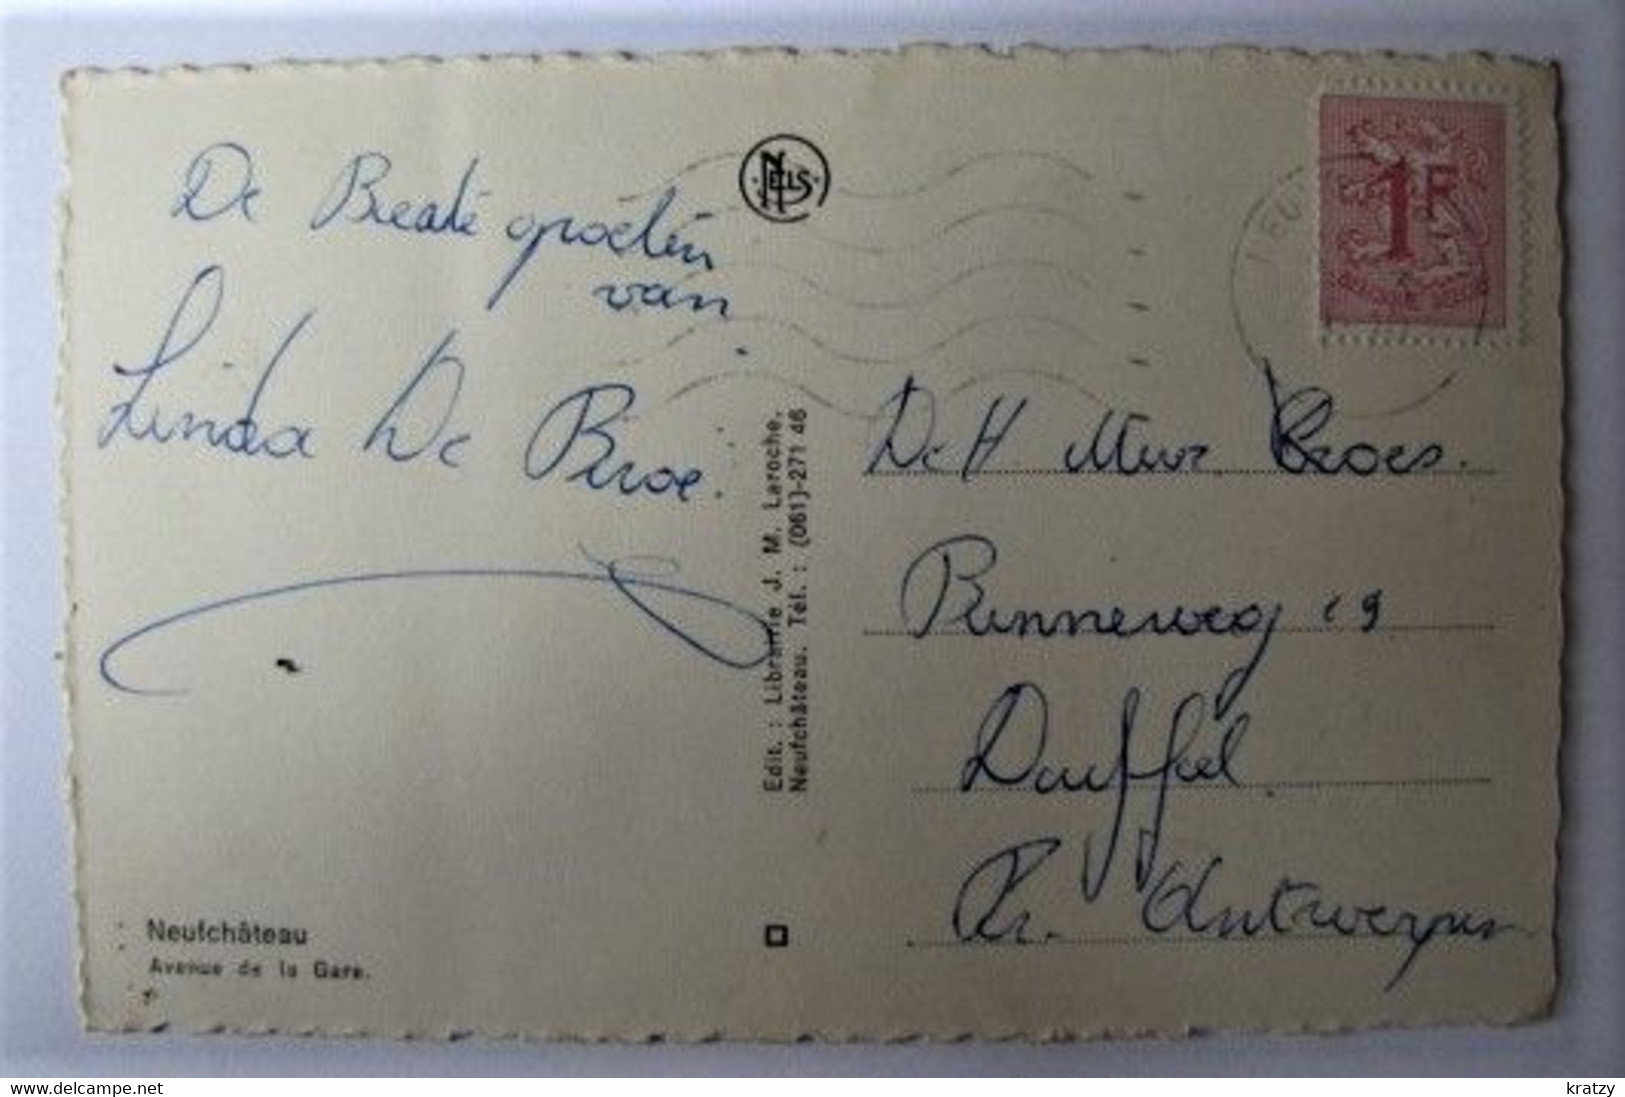 De Beste groeten
van
Linda De Broe.
NELS
Edit. : Librairie J. M. Laroche,
Neufchâteau. Tél. : (061)-271 46
1F
De H Mevr Croes.
Binneweg 19
Duffel.
Pr. Antwerpen
Neufchâteau
Avenue de la Gare.
www.delcampe.net
kratzy